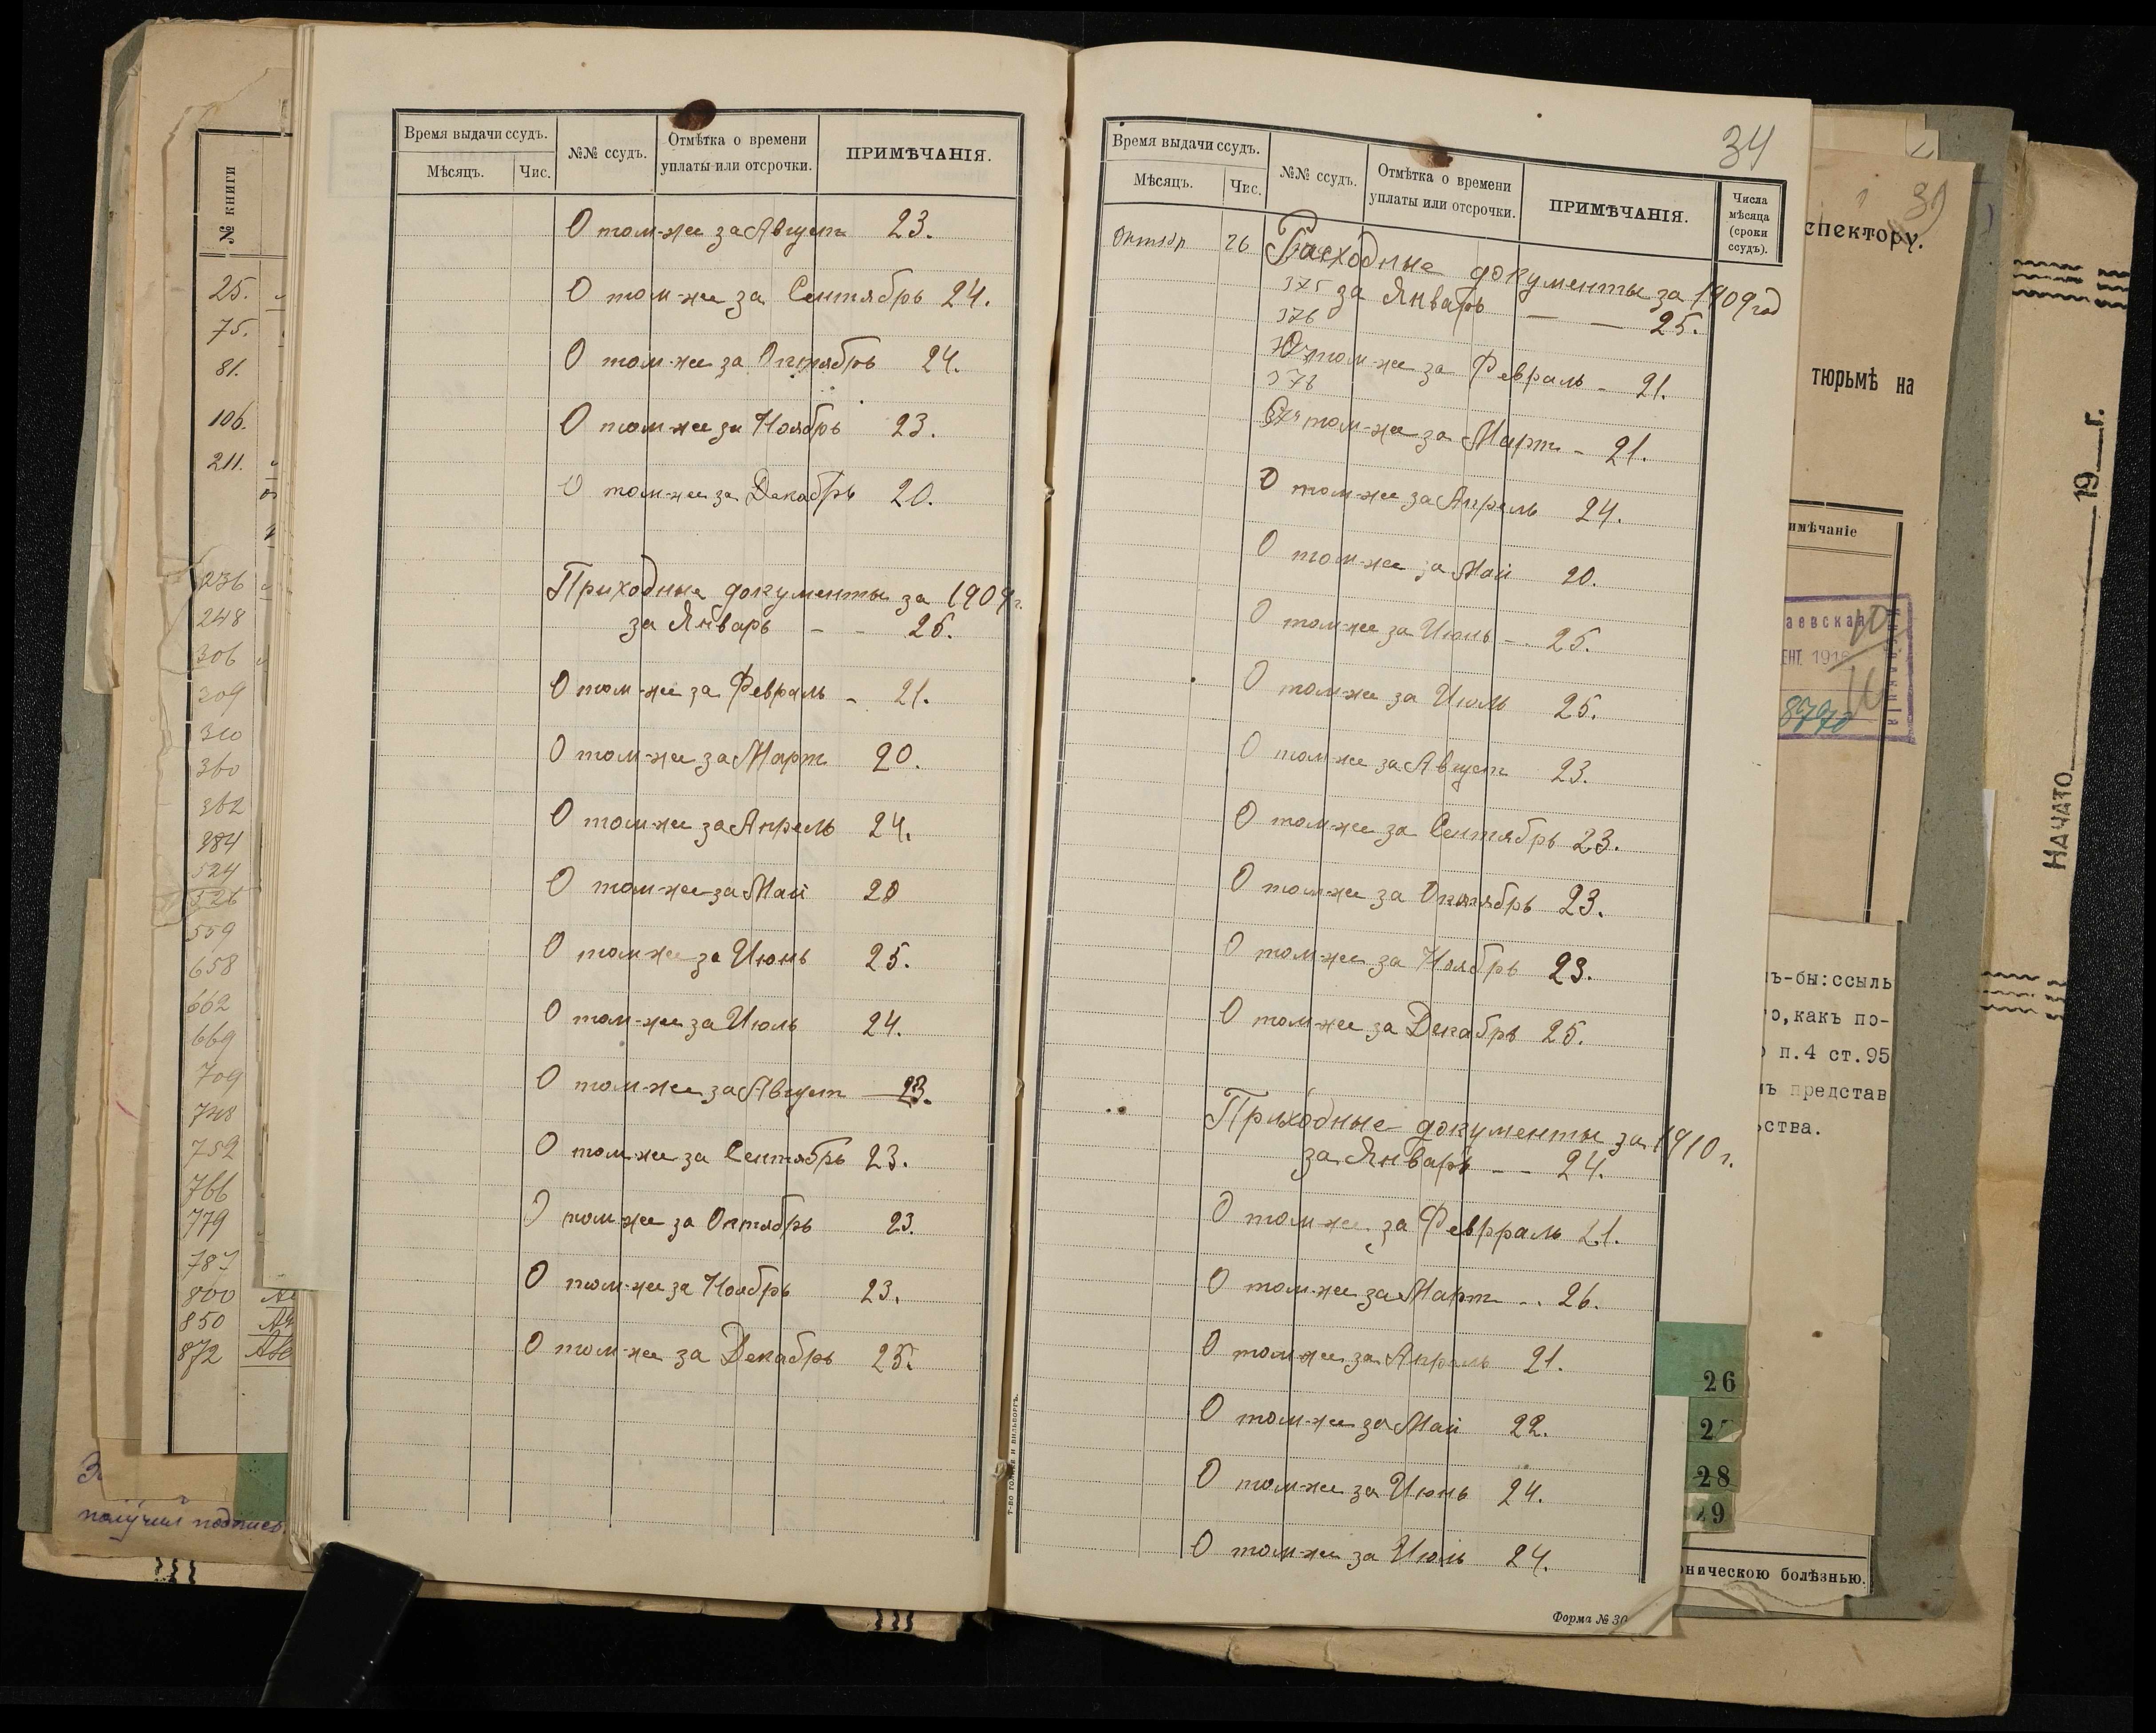 № книги
25.
75.
81.
106.
211.
236
248
306
309
310
360
362
384
524
526
559
658
662
669
709
748
752
766
779
787
800
850
872 Аве
получил подпись
Время выдачи ссудъ.
Мѣсяцъ. Чис.
№№ ссудъ.
Отмѣтка о времени
уплаты или отсрочки.
ПРИМѢЧАНІЯ.
О том-же за Август 23.
О том-же за Сентябрь 24.
О том-же за Октябрь 24.
О том-же за Ноябрь 23.
О том-же за Декабрь 20.
Приходные документы за 1909 г.
за Январь - - 26.
О том-же за Февраль - 21.
О том-же за Март 20.
О том-же за Апрель 24.
О том-же за Май 20
О том-же за Июнь 25.
О том-же за Июль 24.
О том-же за Август 23.
О том-же за Сентябрь 23.
О том-же за Октябрь 23.
О том-же за Ноябрь 23.
О том-же за Декабрь 25.
Т-во ГОЛИКЕ И ВИЛЬБОРГЪ.
34
Время выдачи ссудъ.
Мѣсяцъ. Чис.
№№ ссудъ.
Отмѣтка о времени
уплаты или отсрочки.
ПРИМѢЧАНІЯ.
Числа
мѣсяца
(сроки
ссудъ).
Октябр 26 Расходные документы за 1909 год
375 за Январь - - 25.
376
О том-же за Февраль - 21.
378
О том-же за Март - 21.
О том-же за Апрель 24.
О том-же за Май 20.
О том-же за Июнь - 25.
О том-же за Июль 25.
О том-же за Август 23.
О том-же за Сентябрь 23.
О том-же за Октябрь 23.
О том-же за Ноябрь 23.
О том-же за Декабрь 25.
Приходные документы за 1910 г.
за Январь - - 24.
О том-же за Феврраль 21.
О том-же за Март - . 26.
О том-же за Апрель 21.
О том-же за Май 22.
О том-же за Июнь 24.
О том-же за Июль 24.
Форма № 30
спектору.
тюрьмѣ на
имѣчаніе
аевская
ЕНТ. 1916
8770
ъ-бы:ссыль
о,какъ по-
п.4 ст.95
ъ представ
ства.
26
28
29
оническою болѣзнью.
НАЧАТО 19 г.